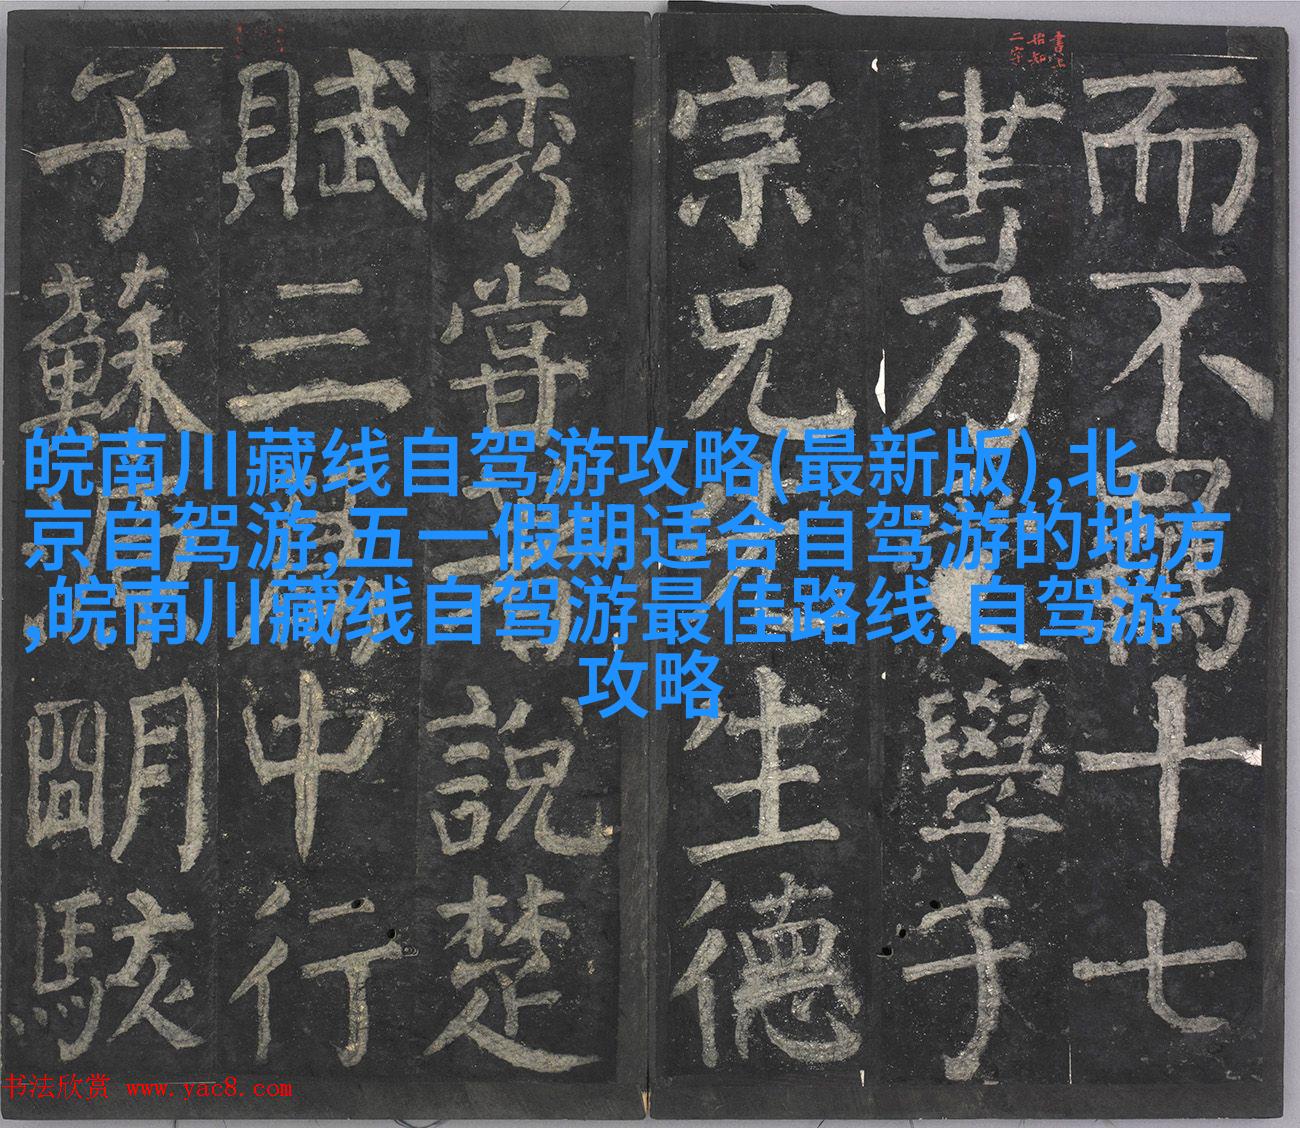 而不十七
書乃學于
宗兄生德
秀嘗說楚
賦三中行
子蘇朙駭
皖南川藏线自驾游攻略(最新版),北
京自驾游,五一假期适合自驾游的地方
,皖南川藏线自驾游最佳路线,自驾游
攻略
书法欣赏 www.yac8.com